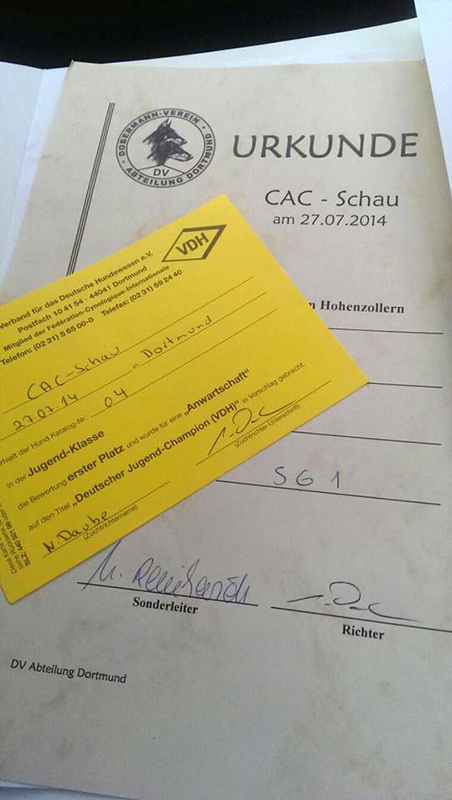 DOBERMANN-VEREIN
DV
ABTEILUNG DORTMUND
URKUNDE
CAC - Schau
am 27.07.2014
Hohenzollern
SG 1
Sonderleiter
Richter
DV Abteilung Dortmund
VDH
Verband für das Deutsche Hundewesen e.V.
Postfach 10 41 54 - 44041 Dortmund
Mitglied der Fédération-Cynologique-Internationale
Telefon: (02 31) 5 65 00-0 Telefax: (02 31) 59 24 40
CAC-Schau
27.07.14 in Dortmund
erhielt der Hund Katalog-Nr.: 04
in der Jugend-Klasse
die Bewertung erster Platz und wurde für eine „Anwartschaft"
auf den Titel „Deutscher Jugend-Champion (VDH)" in Vorschlag gebracht.
N. Daube
(Zuchtrichtername)
(Zuchtrichter-Unterschrift)